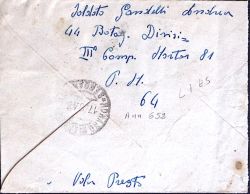 Soldato Gandelli Andrea
44 Battag. Divisi=
III° Comp. Mortai 81
P. M.
64
L 185
Ann 653
17
Vola Presto